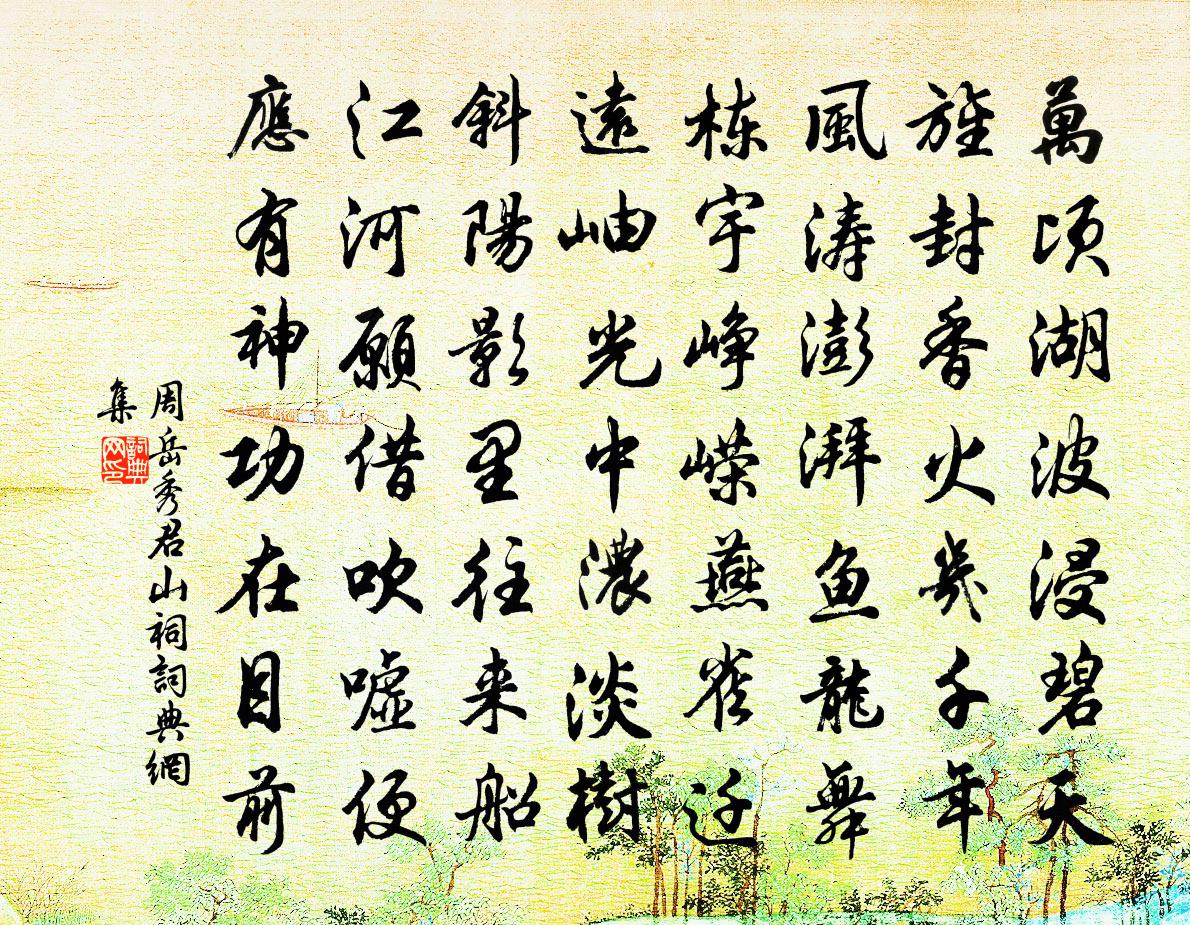 萬顷湖波浸碧天
旌封香火幾千年
風涛澎湃鱼龍舞
栋宇峥嵘燕雀迁
遠岫光中濃淡樹
斜陽影里往来船
江河願借吹嘘便
應有神功在目前
周岳秀君山祠詞典網
集
詞典
网印